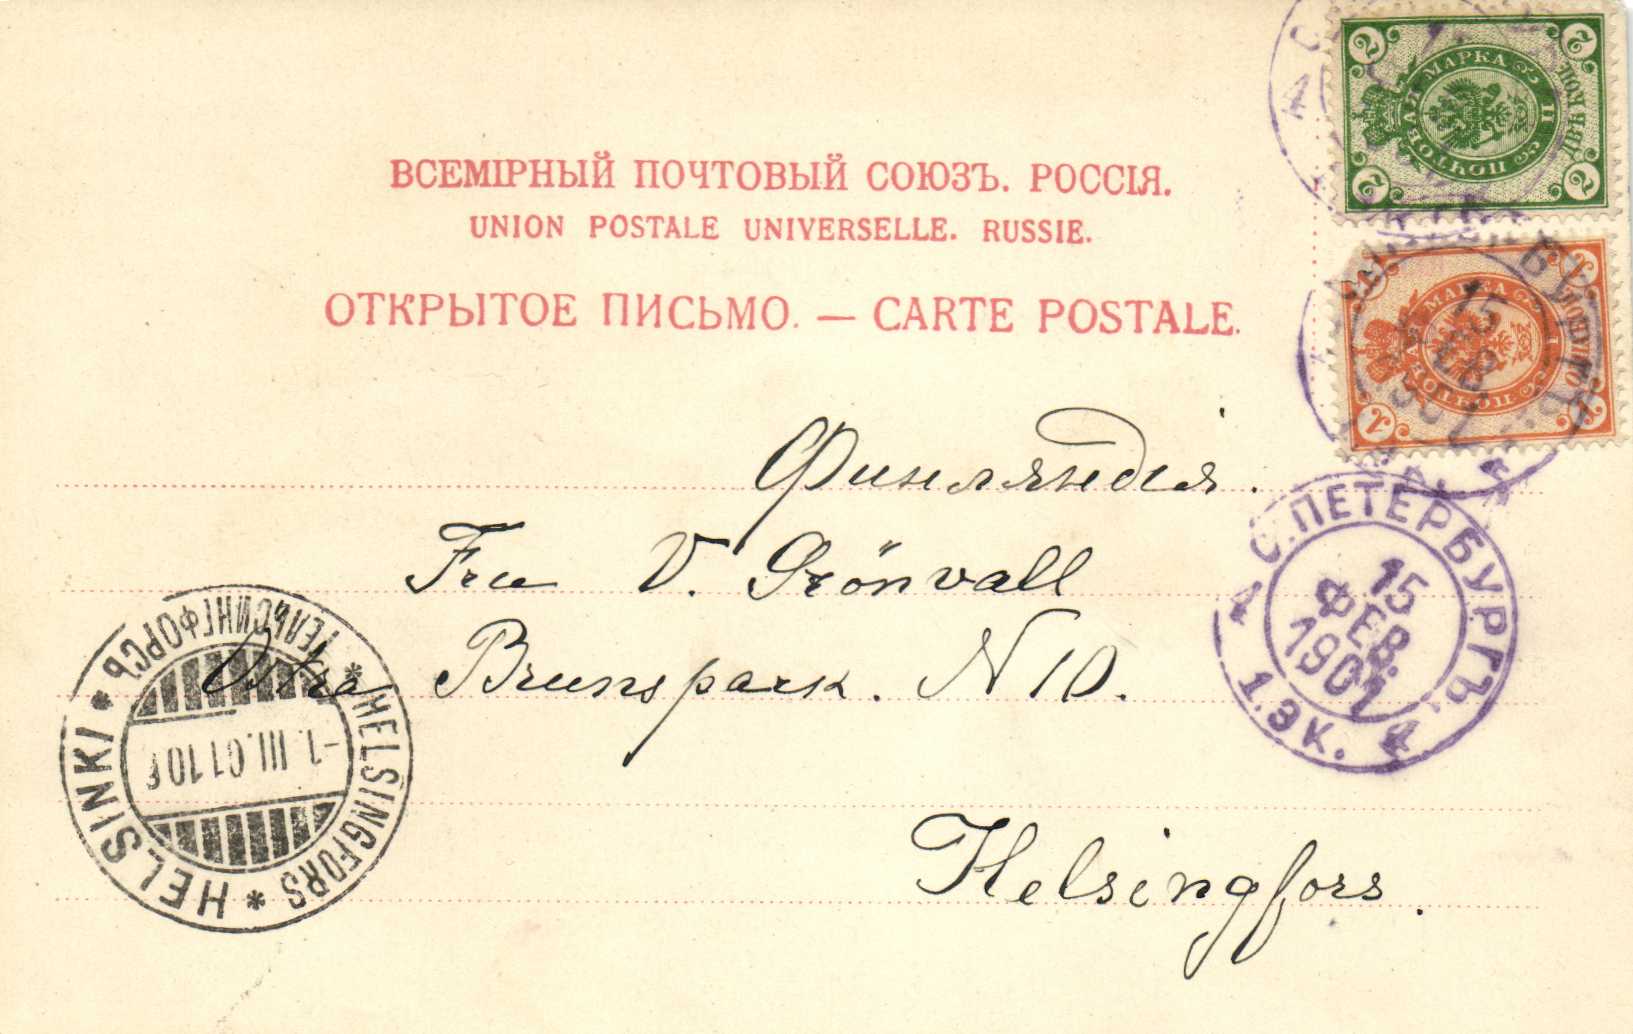 ВСЕМІРНЫЙ ПОЧТОВЫЙ СОЮЗЪ. РОССІЯ.
UNION POSTALE UNIVERSELLE. RUSSIE.
ОТКРЫТОЕ ПИСЬМО. — CARTE POSTALE.
2 2
МАРКА
ПОЧТОВАЯ
ДВѢ КОП.
2 2
МАРКА
ПОЧТОВАЯ
1 1
15
ФЕВ
Финляндія.
Fru V. Grönvall
Östra Brunspark. N 10.
Helsingfors.
С.ПЕТЕРБУРГЪ.
15
ФЕВ.
1901
1.ЭК.
ГЕЛЬСИНГФОРСЪ * HELSINGFORS * HELSINKI *
-1.III.01 10